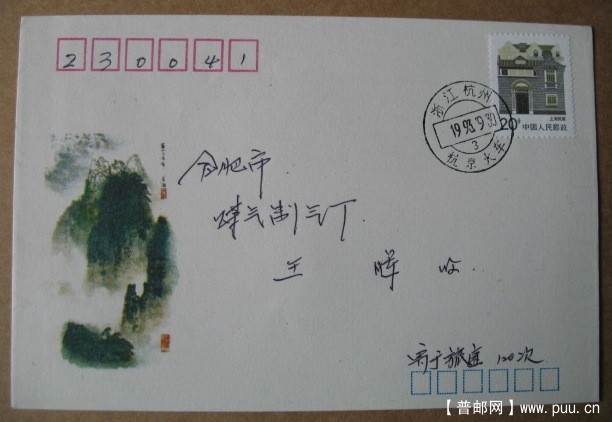 230041
20分
上海民居
中国人民邮政
浙江杭州
1993.9.30
3
杭京火车
合肥市
煤气制气厂
王 晖 收
寄于旅途 120次
【普邮网】www.puu.cn